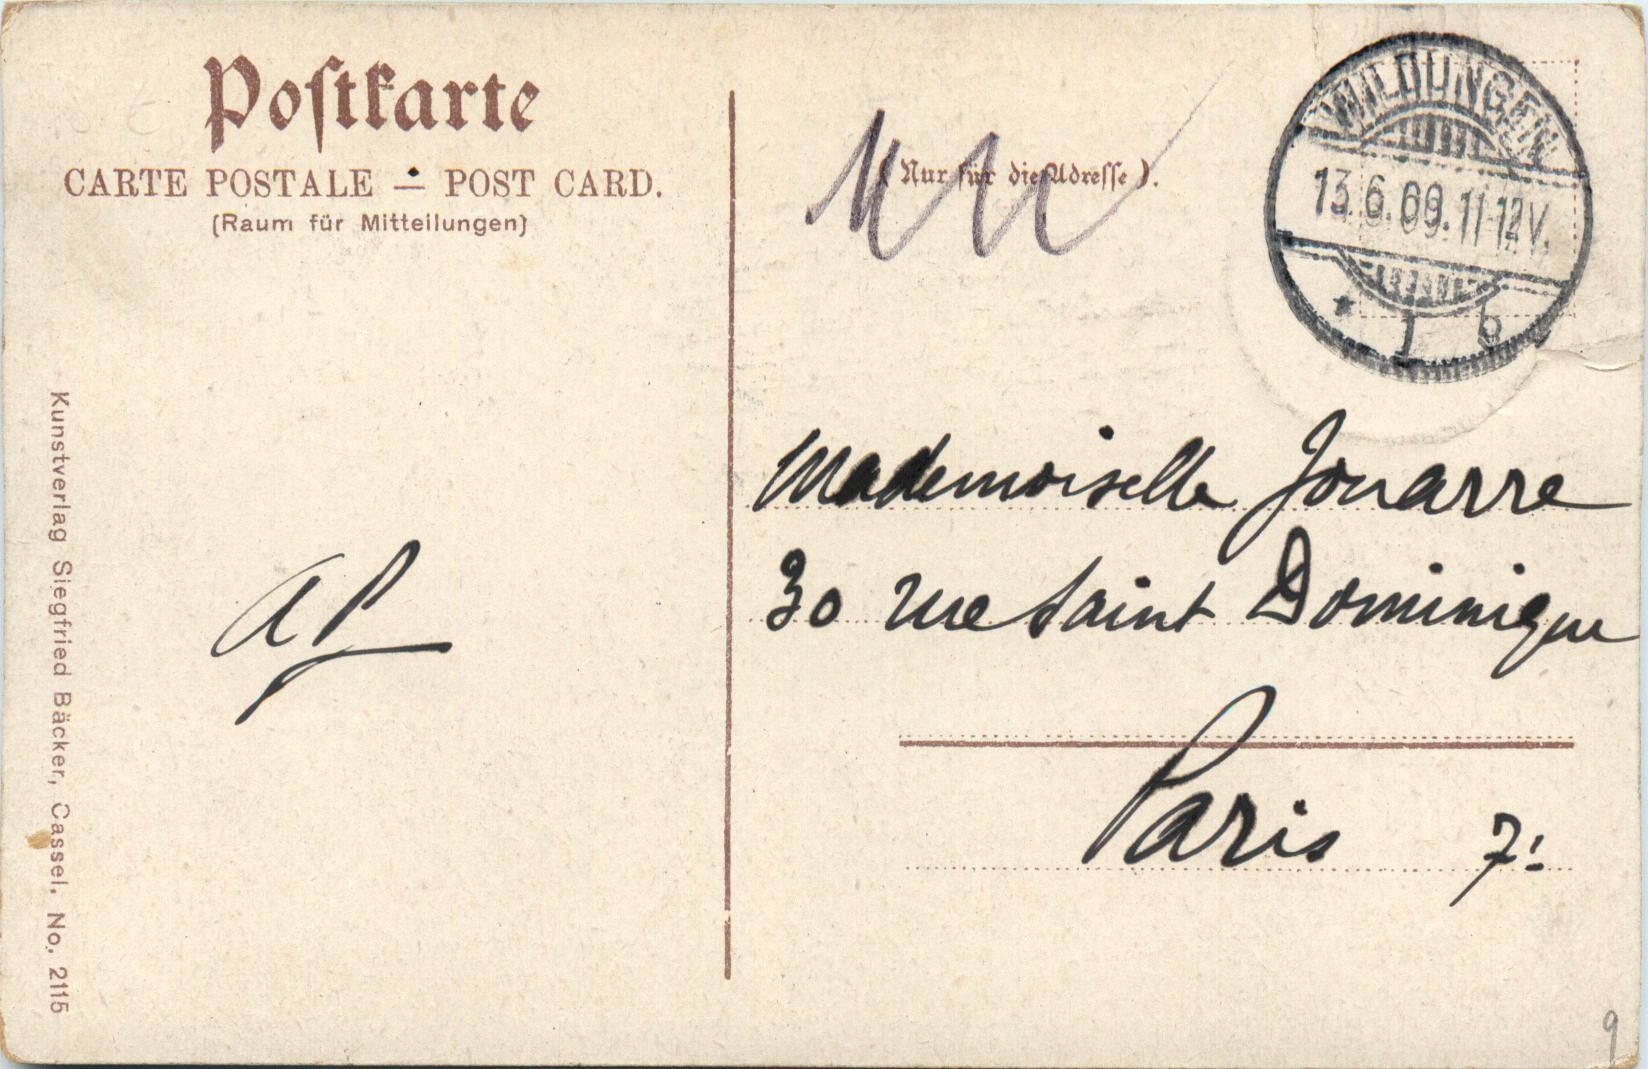 Postkarte
CARTE POSTALE — POST CARD.
(Raum für Mitteilungen)
(Nur für die Adresse).
WILDUNGEN
13.6.09.11-12V.
* 1 b
Mademoiselle Jouarre
30 rue Saint Dominique
Paris 7e
AP
Kunstverlag Siegfried Bäcker, Cassel. No. 2115
9